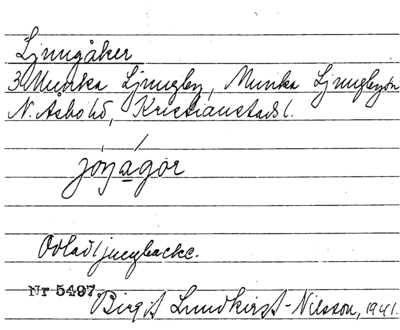 Ljungåker
3 Munka Ljungby, Munka Ljungby sn
N. Åsbo hd, Kristianstads l.
jóŋagór
Odlad ljungbacke.
Nr 5497.
Birgit Lundkvist-Nilsson, 1941.